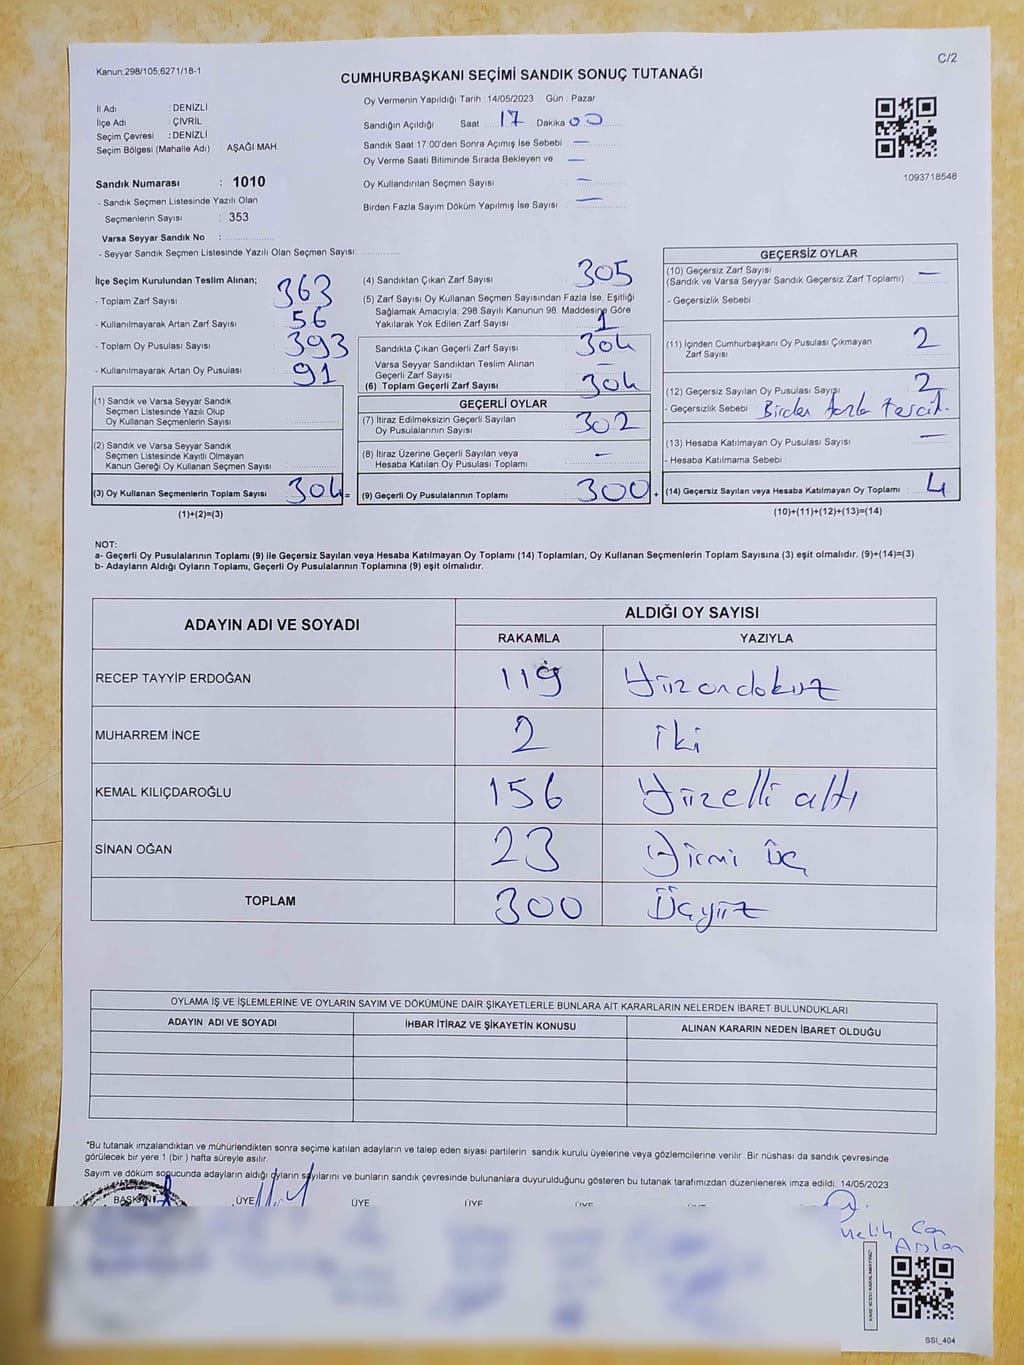 Kanun;298/105;6271/18-1
C/2
CUMHURBAŞKANI SEÇİMİ SANDIK SONUÇ TUTANAĞI
İl Adı : DENİZLİ
İlçe Adı : ÇİVRİL
Seçim Çevresi : DENİZLİ
Seçim Bölgesi (Mahalle Adı) : AŞAĞI MAH.
Sandık Numarası : 1010
- Sandık Seçmen Listesinde Yazılı Olan
Seçmenlerin Sayısı : 353
Varsa Seyyar Sandık No :
- Seyyar Sandık Seçmen Listesinde Yazılı Olan Seçmen Sayısı:
Oy Vermenin Yapıldığı Tarih : 14/05/2023 Gün : Pazar
Sandığın Açıldığı Saat : 17 Dakika 00
Sandık Saat 17:00'den Sonra Açımış İse Sebebi : —
Oy Verme Saati Bitiminde Sırada Bekleyen ve —
Oy Kullandırılan Seçmen Sayısı : —
Birden Fazla Sayım Döküm Yapılmış İse Sayısı : —
1093718548
İlçe Seçim Kurulundan Teslim Alınan;
- Toplam Zarf Sayısı 363
- Kullanılmayarak Artan Zarf Sayısı : 56
- Toplam Oy Pusulası Sayısı : 393
- Kullanılmayarak Artan Oy Pusulası : 91
(1) Sandık ve Varsa Seyyar Sandık
Seçmen Listesinde Yazılı Olup
Oy Kullanan Seçmenlerin Sayısı :
(2) Sandık ve Varsa Seyyar Sandık
Seçmen Listesinde Kayıtlı Olmayan
Kanun Gereği Oy Kullanan Seçmen Sayısı :
(3) Oy Kullanan Seçmenlerin Toplam Sayısı : 304 =
(1)+(2)=(3)
(4) Sandıktan Çıkan Zarf Sayısı : 305
(5) Zarf Sayısı Oy Kullanan Seçmen Sayısından Fazla İse, Eşitliği
Sağlamak Amacıyla; 298 Sayılı Kanunun 98. Maddesine Göre
Yakılarak Yok Edilen Zarf Sayısı : 1
Sandıkta Çıkan Geçerli Zarf Sayısı : 304
Varsa Seyyar Sandıktan Teslim Alınan
Geçerli Zarf Sayısı : —
(6) Toplam Geçerli Zarf Sayısı : 304
GEÇERLİ OYLAR
(7) İtiraz Edilmeksizin Geçerli Sayılan
Oy Pusulalarının Sayısı : 302
(8) İtiraz Üzerine Geçerli Sayılan veya
Hesaba Katılan Oy Pusulası Toplamı : —
(9) Geçerli Oy Pusulalarının Toplamı : 300 +
GEÇERSİZ OYLAR
(10) Geçersiz Zarf Sayısı : —
(Sandık ve Varsa Seyyar Sandık Geçersiz Zarf Toplamı)
- Geçersizlik Sebebi :
(11) İçinden Cumhurbaşkanı Oy Pusulası Çıkmayan 2
Zarf Sayısı
(12) Geçersiz Sayılan Oy Pusulası Sayısı : 2
- Geçersizlik Sebebi : Birden fazla tercih.
(13) Hesaba Katılmayan Oy Pusulası Sayısı : —
- Hesaba Katılmama Sebebi :
(14) Geçersiz Sayılan veya Hesaba Katılmayan Oy Toplamı : 4
(10)+(11)+(12)+(13)=(14)
NOT:
a- Geçerli Oy Pusulalarının Toplamı (9) ile Geçersiz Sayılan veya Hesaba Katılmayan Oy Toplamı (14) Toplamları, Oy Kullanan Seçmenlerin Toplam Sayısına (3) eşit olmalıdır. (9)+(14)=(3)
b- Adayların Aldığı Oyların Toplamı, Geçerli Oy Pusulalarının Toplamına (9) eşit olmalıdır.
ADAYIN ADI VE SOYADI
ALDIĞI OY SAYISI
RAKAMLA YAZIYLA
RECEP TAYYİP ERDOĞAN 119 Yüzondokuz
MUHARREM İNCE 2 iki
KEMAL KILIÇDAROĞLU 156 Yüzelli altı
SİNAN OĞAN 23 Yirmi üç
TOPLAM 300 Üçyüz
OYLAMA İŞ VE İŞLEMLERİNE VE OYLARIN SAYIM VE DÖKÜMÜNE DAİR ŞİKAYETLERLE BUNLARA AİT KARARLARIN NELERDEN İBARET BULUNDUKLARI
ADAYIN ADI VE SOYADI İHBAR İTİRAZ VE ŞİKAYETİN KONUSU ALINAN KARARIN NEDEN İBARET OLDUĞU
*Bu tutanak imzalandıktan ve mühürlendikten sonra seçime katılan adayların ve talep eden siyasi partilerin sandık kurulu üyelerine veya gözlemcilerine verilir. Bir nüshası da sandık çevresinde
görülecek bir yere 1 (bir ) hafta süreyle asılır.
Sayım ve döküm sonucunda adayların aldığı oyların sayılarını ve bunların sandık çevresinde bulunanlara duyurulduğunu gösteren bu tutanak tarafımızdan düzenlenerek imza edildi. 14/05/2023
BAŞKAN ÜYE ÜYE ÜYE ÜYE
Melih Can
Arslan
SSI_404